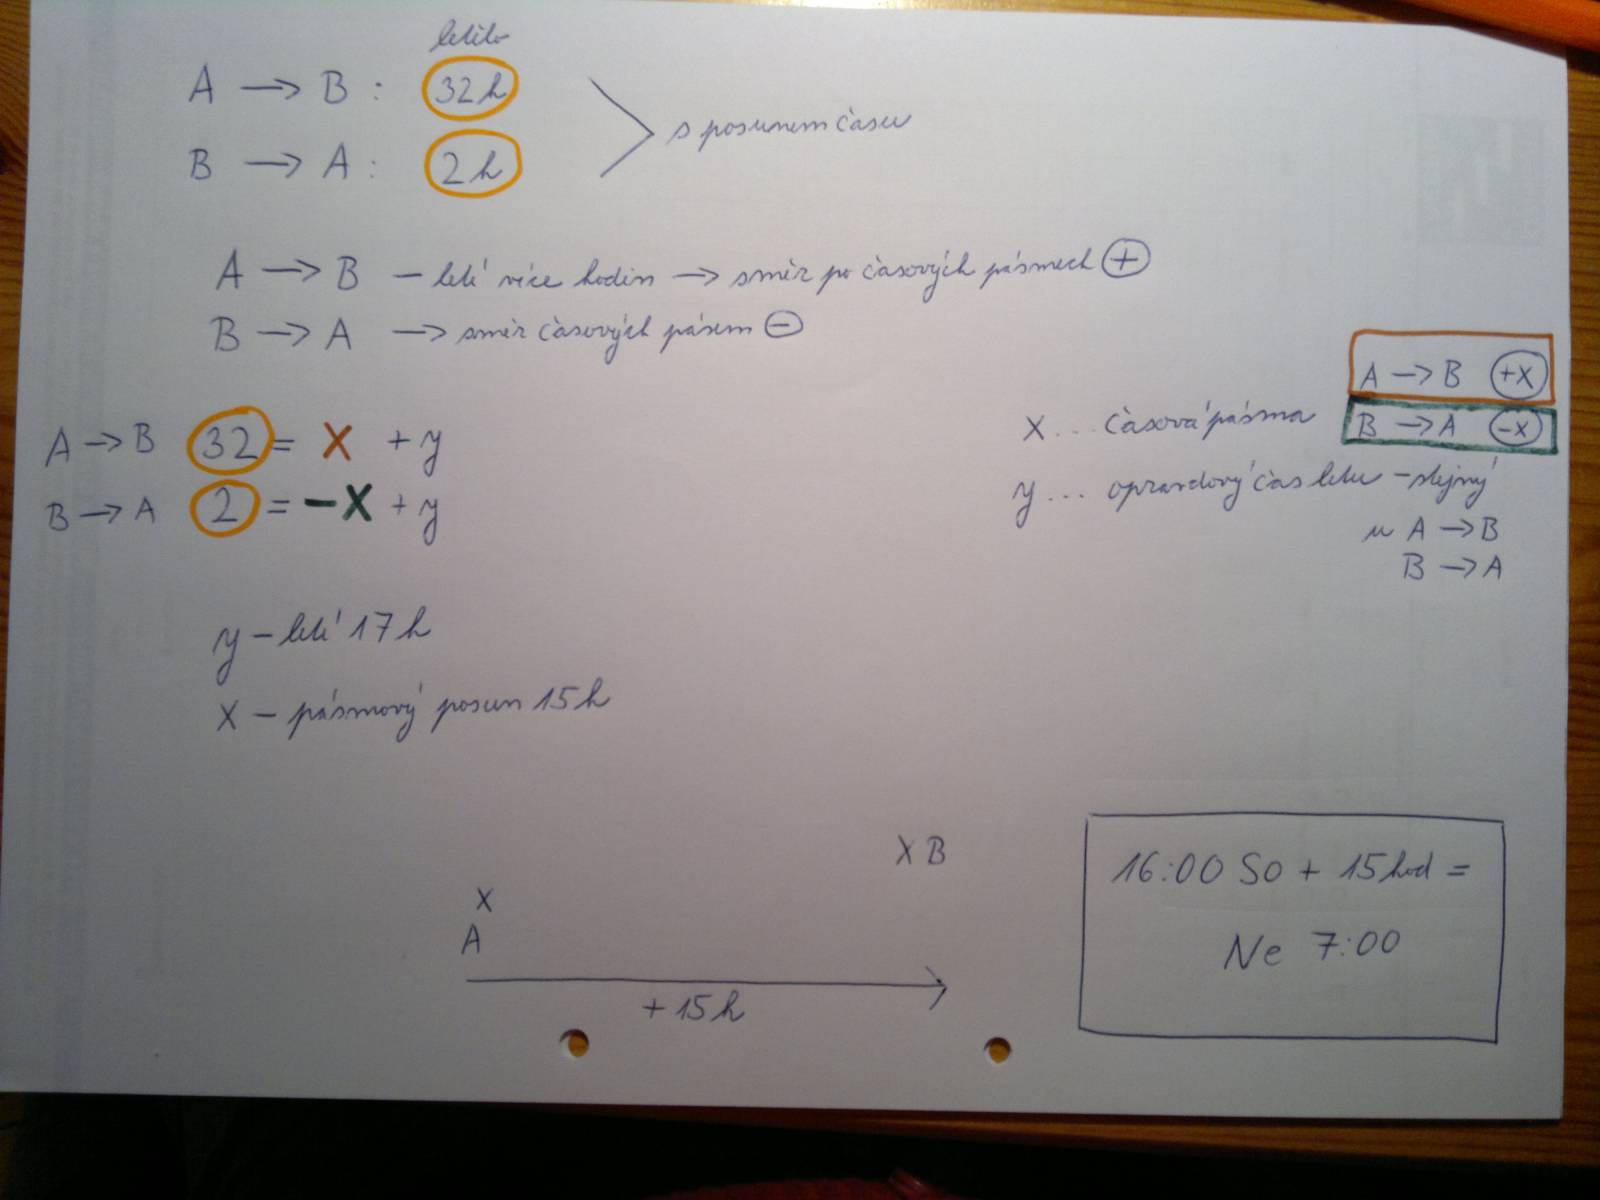 letělo
A → B : 32h
B → A : 2h
s posunem času
A → B – letí více hodin → směr po časových pásmech +
B → A → směr časových pásem –
A → B +x
B → A -x
A → B 32 = x + y
B → A 2 = -x + y
x ... časová pásma
y ... opravdový čas letu – stejný
u A → B
B → A
y – letí 17h
x – pásmový posun 15h
x B
x
A
+ 15h
16:00 So + 15hod =
Ne 7:00